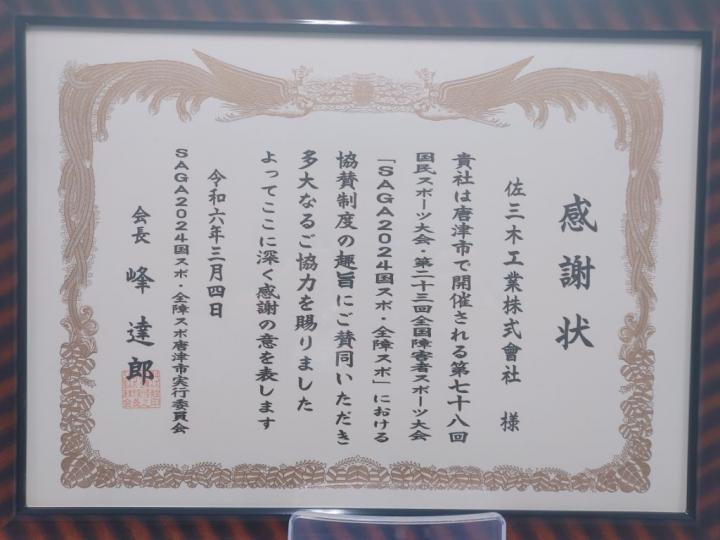 感謝状
佐三木工業株式會社 様
貴社は唐津市で開催される第七十八回
国民スポーツ大会・第二十三回全国障害者スポーツ大会
「SAGA2024国スポ・全障スポ」における
協賛制度の趣旨にご賛同いただき
多大なるご協力を賜りました
よってここに深く感謝の意を表します
令和六年三月四日
SAGA2024国スポ・全障スポ唐津市実行委員会
会長 峰 達郎